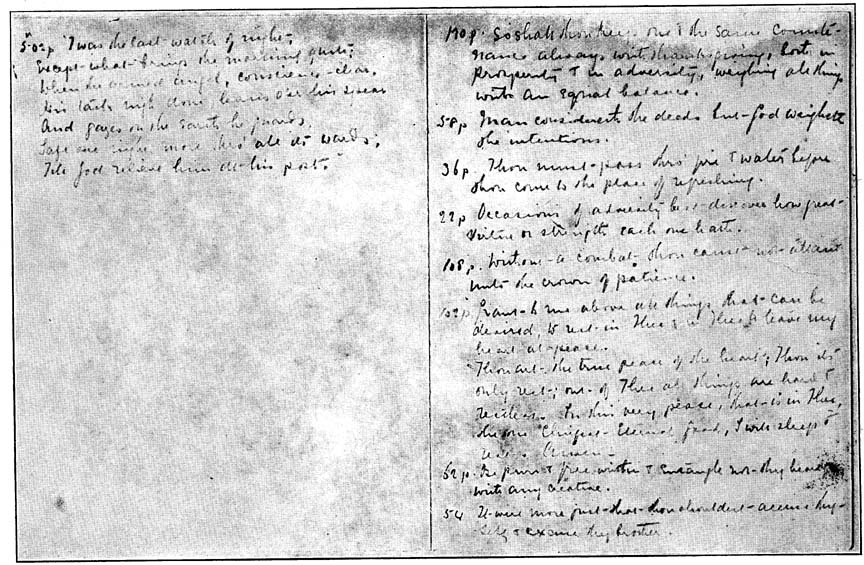 502p 'Twas the last watch of night,
Except what brings the morning quite;
When the armed angel, conscience-clear,
His task nigh done, leans o'er his spear
And gazes on the earth he guards,
Safe one night more thro' all its wards,
Till God relieve him at his post.
190p. So shalt thou keep one & the same counte-
nance always with thanksgiving, both in
Prosperity & in adversity, weighing all things
with an equal balance.
58p Man considereth the deeds but God weigheth
the intentions.
36p. Thou must pass thro' fire & water before
thou come to the place of refreshing.
22p Occasions of adversity best discover how great
Virtue or strength each one hath.
108p. Without a combat thou canst not attain
unto the crown of patience.
102p. Grant to me above all things that can be
desired, to rest in Thee & in Thee to have my
heart at peace.
Thou art the true peace of the heart; Thou its
only rest; out of Thee all things are hard &
restless. In this very peace, that is in Thee,
the one Chiefest Eternal Good, I will sleep &
rest. Amen.
62p. Be pure & free within & entangle not thy heart
with any creature.
54 It were more just that thou shouldest accuse thy-
self & excuse thy brother.